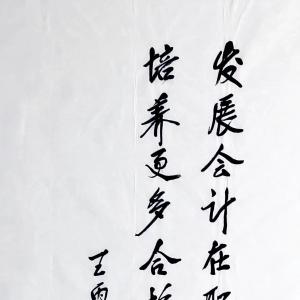 发展会计在职
培养更多合格
王